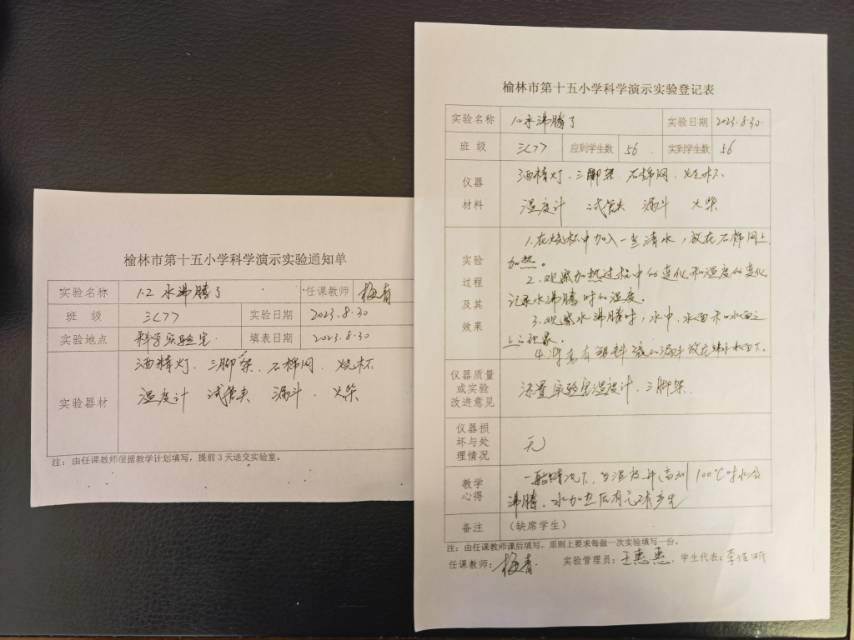 榆林市第十五小学科学演示实验通知单
实验名称 1.2 水沸腾了 任课教师 梅青
班 级 三<7> 实验日期 2023.8.30
实验地点 科学实验室 填表日期 2023.8.30
实验器材 酒精灯、三脚架、石棉网、烧杯
温度计 试管夹 漏斗、火柴
注：由任课教师依据教学计划填写，提前3天送交实验室。
榆林市第十五小学科学演示实验登记表
实验名称 水沸腾了 实验日期 2023.8.30
班 级 三<7> 应到学生数 56 实到学生数 56
仪器材料 酒精灯、三脚架、石棉网、烧杯
温度计 试管夹 漏斗 火柴
实验过程及其效果 1.在烧杯中加入一些清水，放在石棉网上
加热。
2.观察加热过程中的变化和温度的变化
记录水沸腾时的温度。
3.观察水沸腾时，水中、水面和水面之
上的现象。
4.
仪器质量或实验改进意见 实验室温度计、三脚架
仪器损坏与处理情况 无
教学心得 一般情况下，当温度升高到100℃时水会
沸腾，水加热后有气泡产生
备注 （缺席学生）
注：由任课教师课后填写，原则上要求每做一次实验填写一份。
任课教师：梅青 实验管理员：王惠惠 学生代表：李